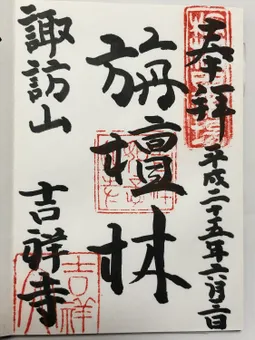 奉拝
平成二十五年六月二日
旃檀林
諏訪山 吉祥寺